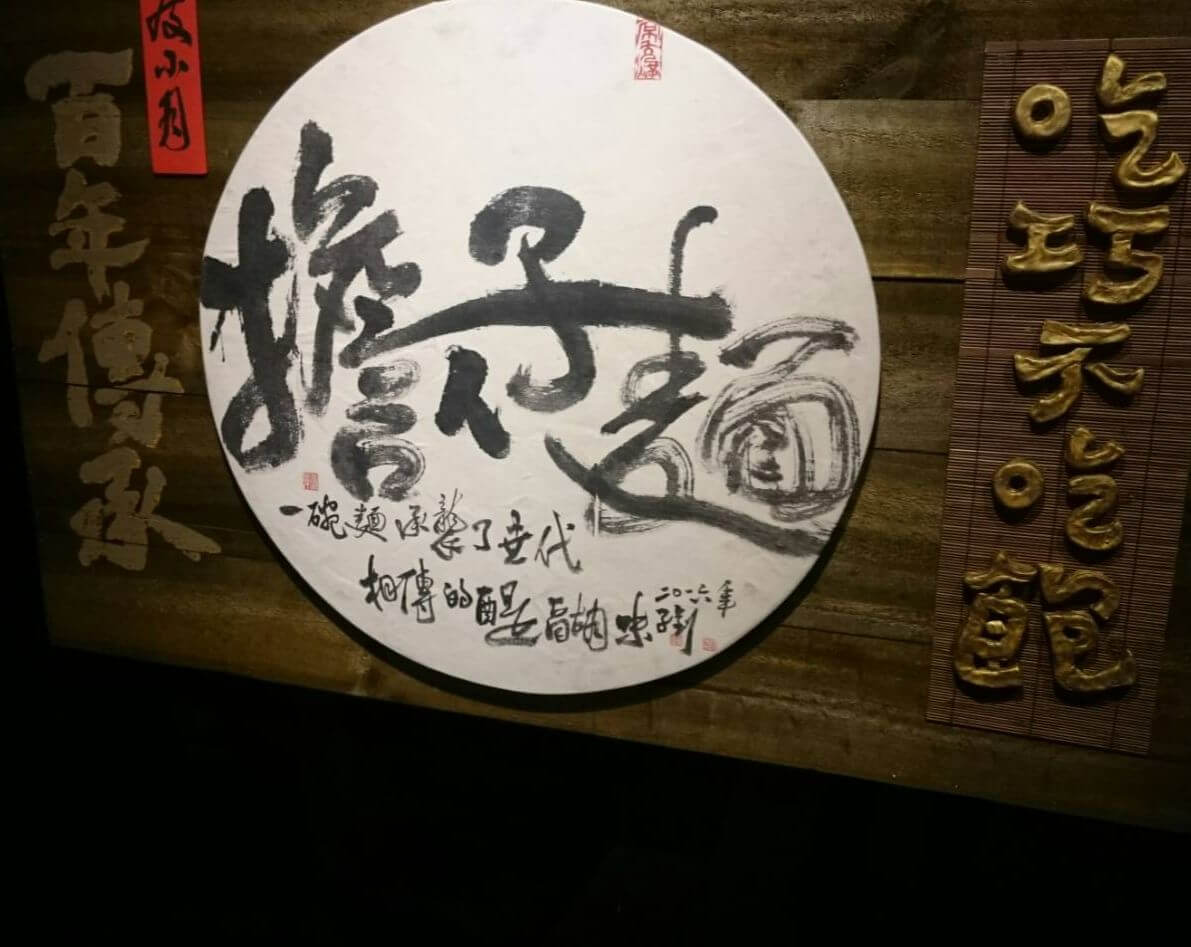 百年傳承
度小月
擔仔麵
一碗麵承襲了世代
相傳的醍醐味
二〇一六年
吃巧不吃飽